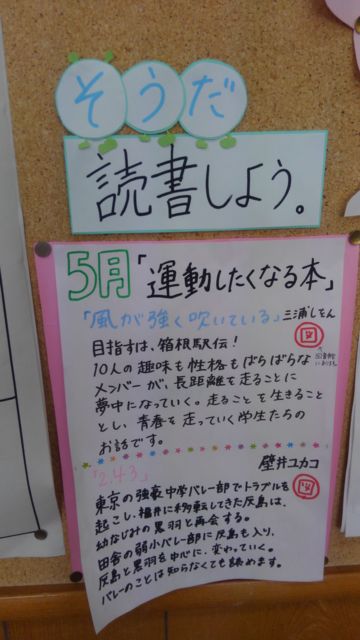 そうだ
読書しよう。
5月「運動したくなる本」
「風が強く吹いている」三浦しをん
図
図書館にあります。
目指すは、箱根駅伝!
10人の趣味も性格もばらばらな
メンバーが、長距離を走ることに
夢中になっていく。走ることを生きること
とし、青春を走っていく学生たちの
お話です。
「2.43」 壁井ユカコ
図
東京の強豪中学バレー部でトラブルを
起こし、福井に移転してきた灰島は、
幼なじみの黒羽と再会する。
田舎の弱小バレー部に灰島も入り、
灰島と黒羽を中心に、変わっていく。
バレーのことは知らなくても読めます。